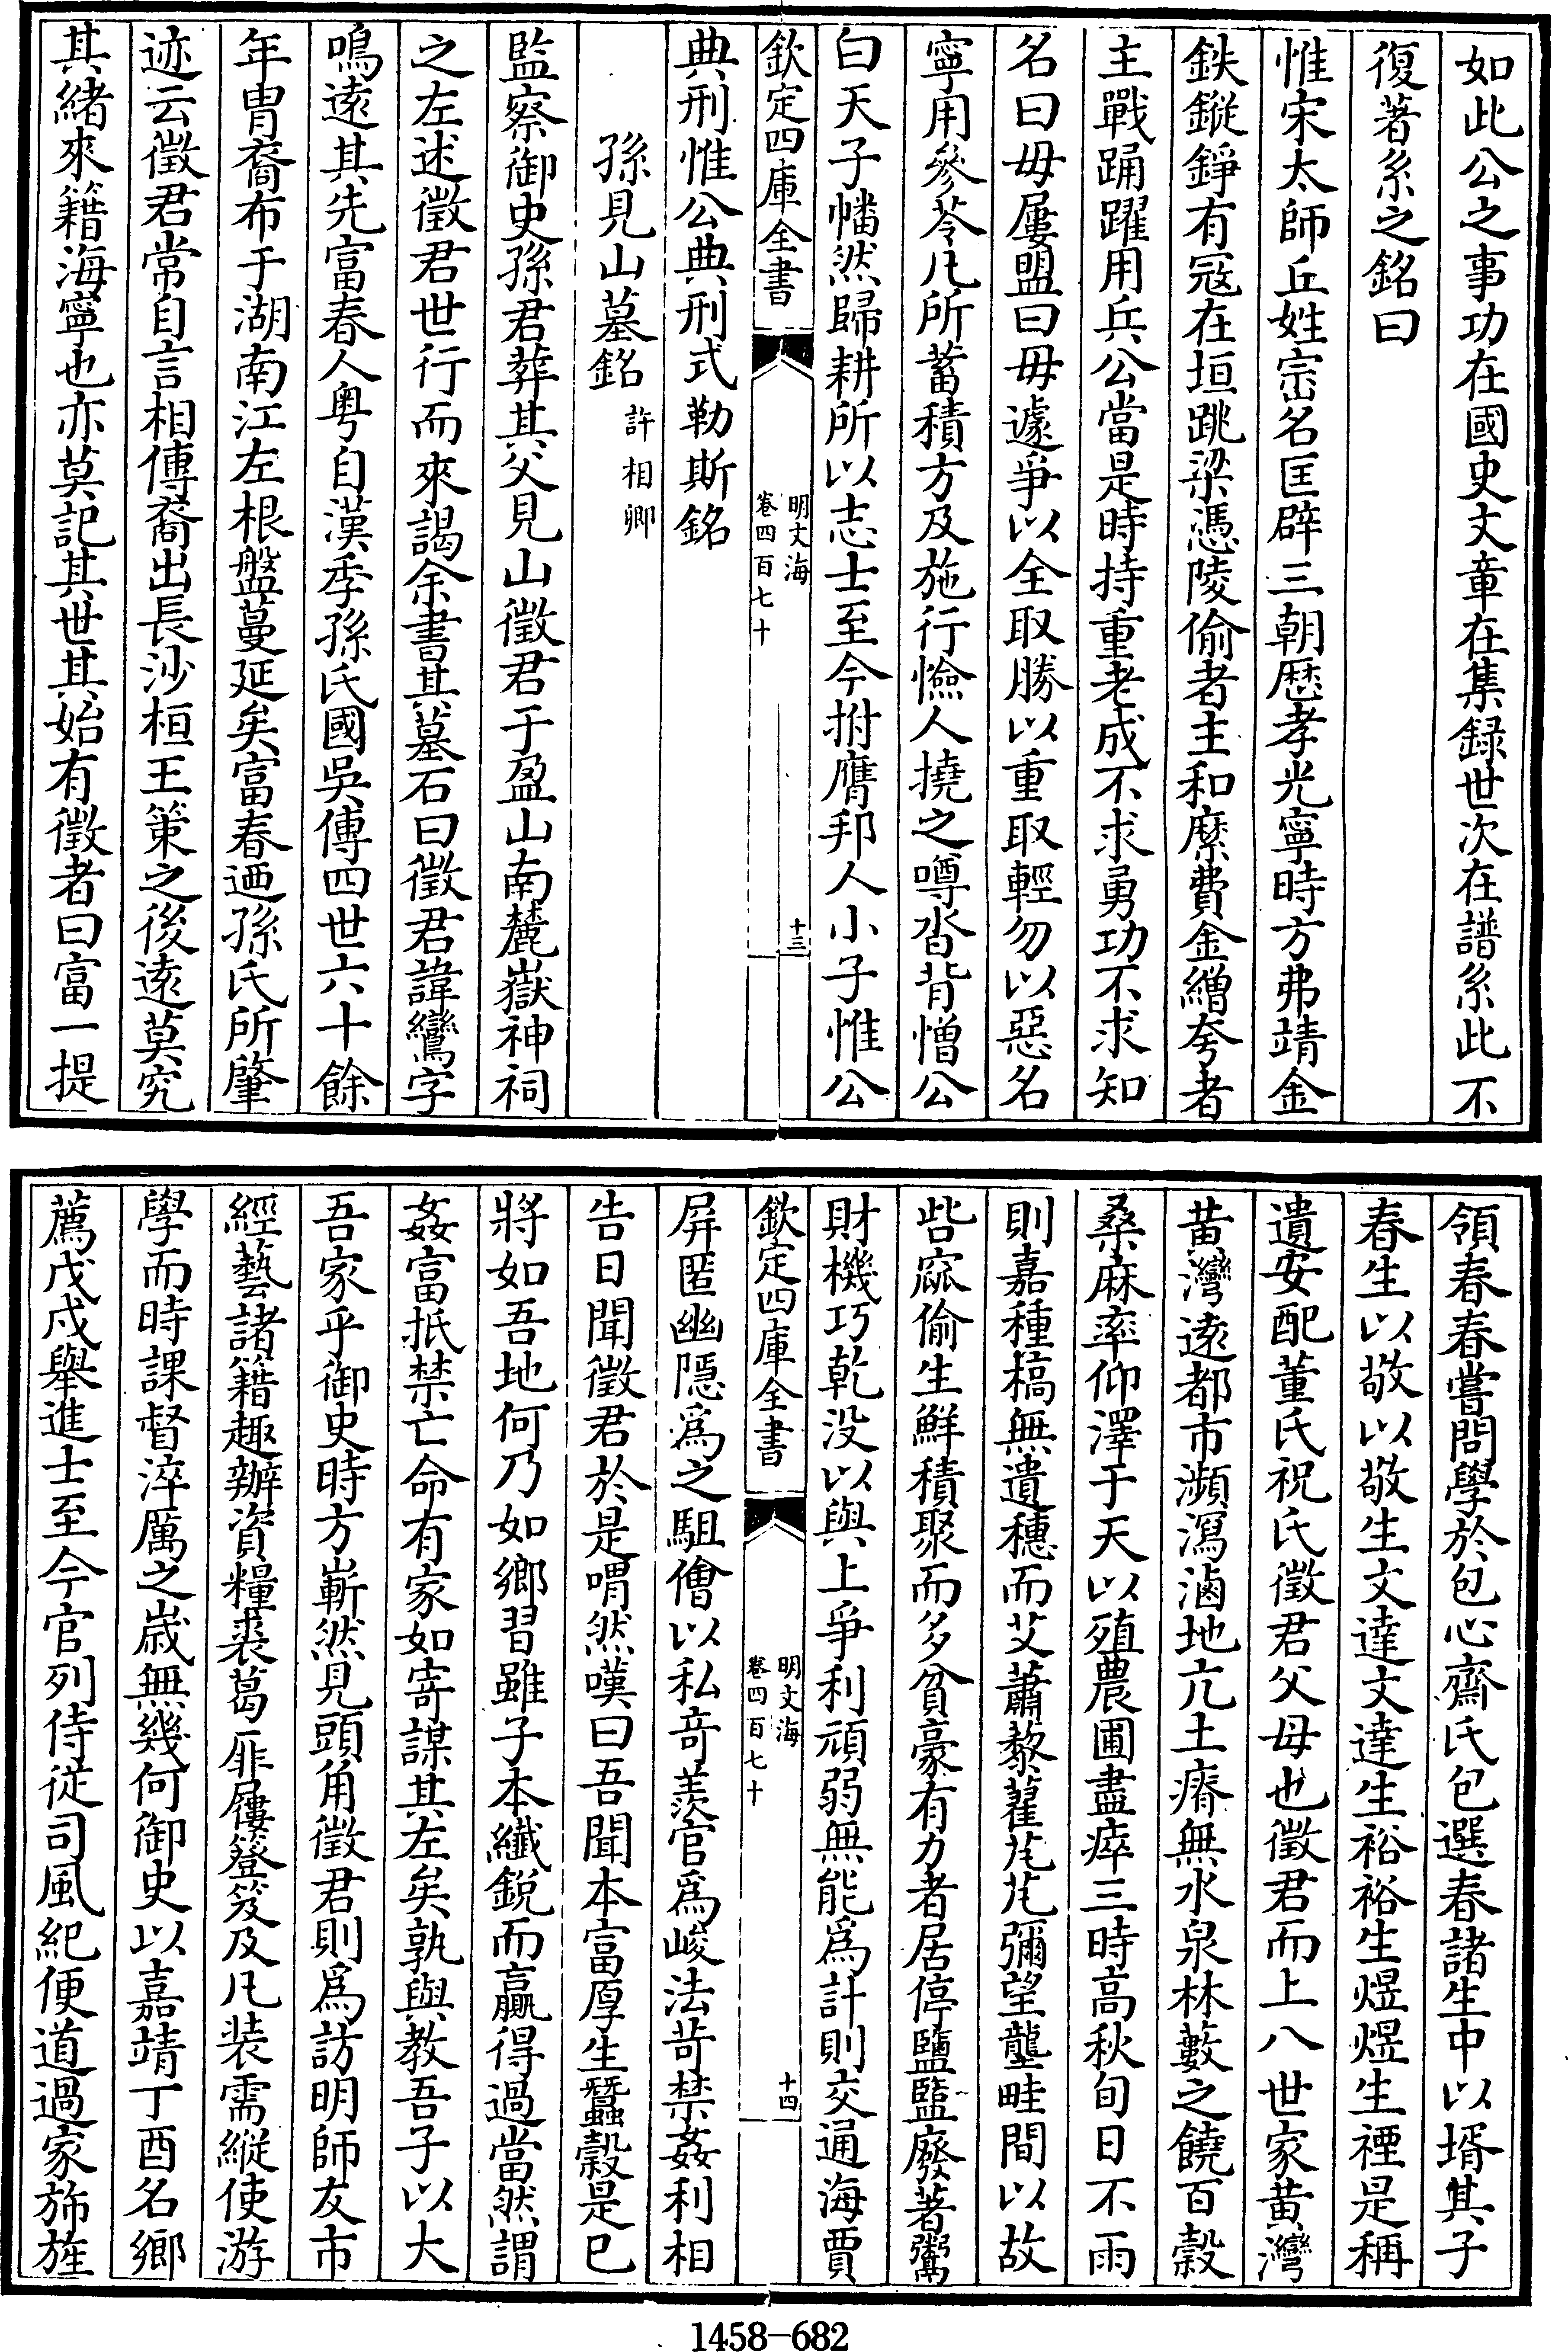 如此公之事功在國史文章在集録世次在譜系此不
復著系之銘曰
惟宋太師丘姓崈名匡辟三朝歴孝光寧時方弗靖金
鉄鏦錚有冦在垣跳梁憑陵偷者主和縻費金繒夸者
主戰踊躍用兵公當是時持重老成不求勇功不求知
名曰毋屢盟曰毋遽爭以全取勝以重取輕勿以惡名
寧用參苓凡所蓄積方及施行憸人撓之噂沓背憎公
白天子幡然歸耕所以志士至今拊膺邦人小子惟公
欽定四庫全書
明文海
卷四百七十
十三
典刑惟公典刑式勒斯銘
孫見山墓銘 許相卿
監察御史孫君葬其父見山徵君于盈山南麓嶽神祠
之左述徵君世行而來謁余書其墓石曰徵君諱鸞字
鳴逺其先富春人粤自漢季孫氏國吳傳四世六十餘
年胄裔布于湖南江左根盤蔓延矣富春廼孫氏所肇
迹云徵君常自言相傳裔出長沙桓王策之後逺莫究
其緒來籍海寧也亦莫記其世其始有徵者曰富一提
領春春嘗問學於包心齋氏包選春諸生中以壻其子
春生以敬以敬生文達文達生裕裕生煜煜生禋是稱
遺安配董氏祝氏徵君父母也徵君而上八世家黄灣
黄灣逺都市瀕瀉滷地亢土瘠無水泉林藪之饒百穀
桑麻率仰澤于天以殖農圃盡瘁三時高秋旬日不雨
則嘉種槁無遺穗而艾蕭藜藋芃芃彌望壟畦間以故
呰窳偷生鮮積聚而多貧豪有力者居停鹽盬廢著鬻
財機巧乾没以與上爭利頑弱無能爲計則交通海賈
欽定四庫全書
明文海
卷四百七十
十四
屏匿幽隱爲之駔儈以私竒羨官爲峻法苛禁姦利相
告日聞徵君於是喟然嘆曰吾聞本富厚生蠶穀是已
將如吾地何乃如鄉習雖子本纎銳而贏得過當然謂
姦富抵禁亡命有家如寄謀其左矣孰與教吾子以大
吾家乎御史時方嶄然見頭角徵君則爲訪明師友市
經藝諸籍趣辦資糧裘葛屝屨簦笈及凡装需縦使游
學而時課督淬厲之嵗無幾何御史以嘉靖丁酉名鄉
薦戊戌舉進士至今官列侍從司風紀便道過家斾旌
1458-682